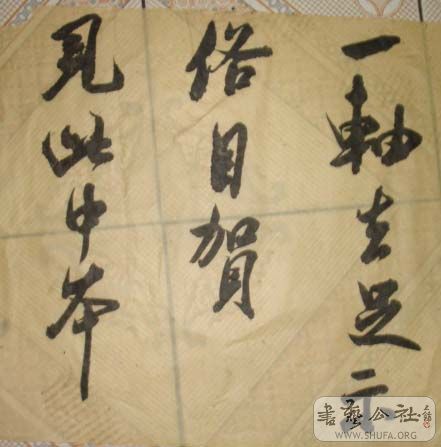 一軸去足
俗目賀
見此中本
書藝公社
WWW.SHUFA.ORG